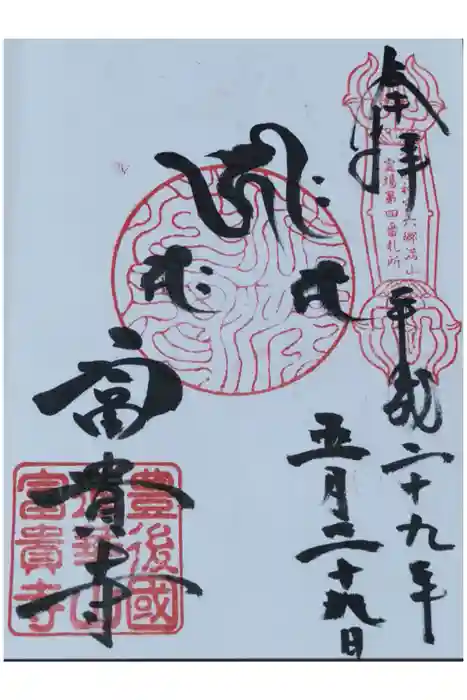 奉拝
平成二十九年
五月二十九日
六郷満山
霊場第四番札所
富貴寺
豊後國
蓮華山
富貴寺